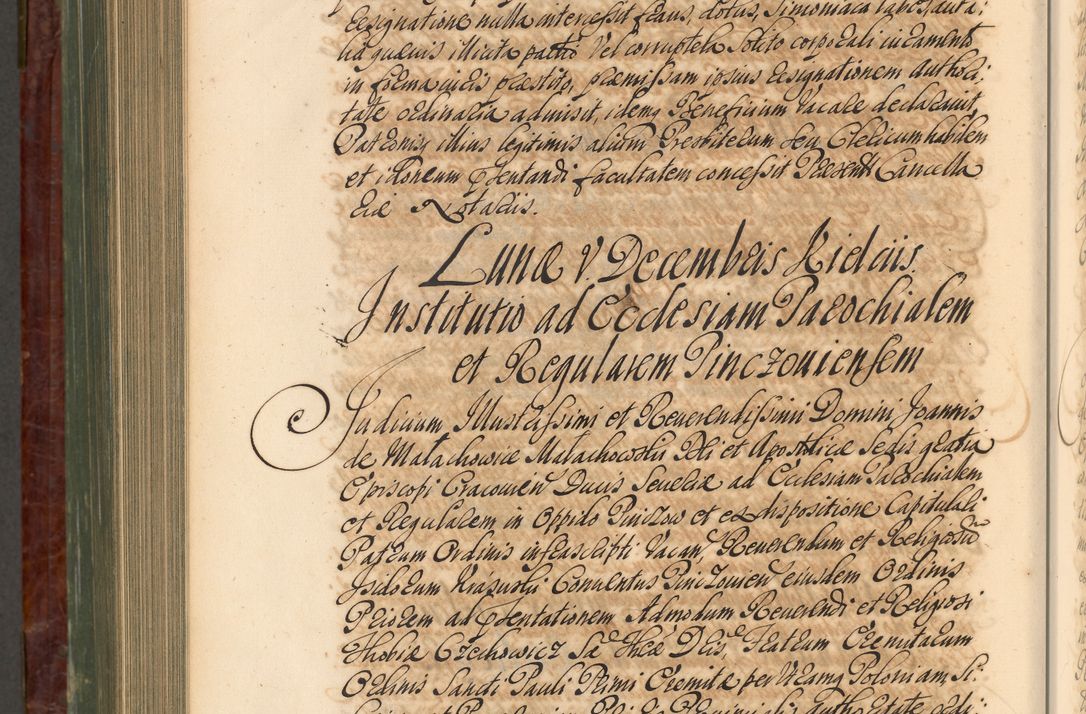 Resignatione nulla intercessit fraus, dolus, Simoniaca labes, aut a:
lia quævis illicita pactio Vel corruptela Solito corporali iuramento
in forma iuris præstito, præmissam ipsius Resignationem Authori:
tate ordinaria admisit, idemq Beneficium Vacare declaravit,
Patronisq illius legitimis alium Presbiterum seu Clericum habilem
et idoneum præsentandi facultatem concessit Præsentt Cancella
riæ Notariis.
Lunæ V. Decembris Kielciis.
Institutio ad Ecclesiam Parochialem
et Regularem Pinczouiensem
Iudicium Illustrissimi et Reuerendissimi Domini Joannis
de Małachowice Małachowski Dei et Apostolicæ Sedis gratia
Episcopi Cracouien Ducis Seueriæ ad Ecclesiam Parochialem
et Regularem in Oppido Pinczow et ex dispositione Capitulali
Patrum Ordinis infrascripti Vacan Reuerendum et Religiosum
Isidorum Krasuski Conuentus Pinczouien eiusdem Ordinis
Priorem ad præsentationem Admodum Reuerendi et Religiosi
Thobiæ Czechowicz Sæ Theæ Dris, Fratrum Eremitarum
Ordinis Sancti Pauli Primi Eremitæ per Utramq Poloniam Li: